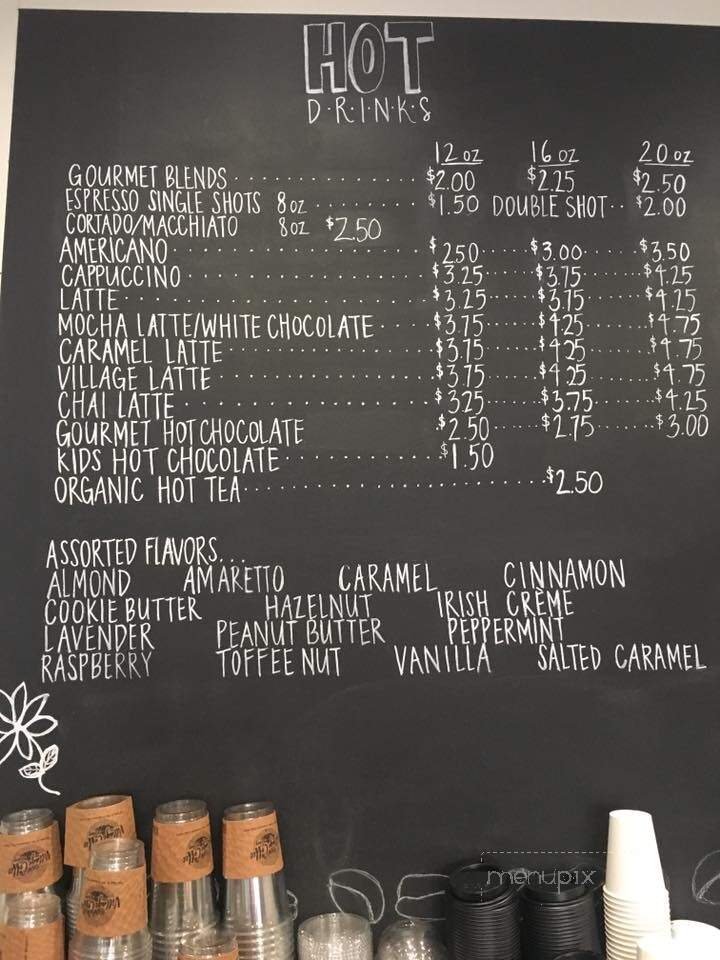 HOT
D·R·I·N·K·S
12 oz 16 oz 20 oz
GOURMET BLENDS $2.00 $2.25 $2.50
ESPRESSO SINGLE SHOTS 8oz $1.50 DOUBLE SHOT $2.00
CORTADO/MACCHIATO 8oz $2.50
AMERICANO $2.50 $3.00 $3.50
CAPPUCCINO $3.25 $3.75 $4.25
LATTE $3.25 $3.75 $4.25
MOCHA LATTE/WHITE CHOCOLATE $3.75 $4.25 $4.75
CARAMEL LATTE $3.75 $4.25 $4.75
VILLAGE LATTE $3.75 $4.25 $4.75
CHAI LATTE $3.25 $3.75 $4.25
GOURMET HOT CHOCOLATE $2.50 $2.75 $3.00
KIDS HOT CHOCOLATE $1.50
ORGANIC HOT TEA $2.50
ASSORTED FLAVORS...
ALMOND AMARETTO CARAMEL CINNAMON
COOKIE BUTTER HAZELNUT IRISH CRÈME
LAVENDER PEANUT BUTTER PEPPERMINT
RASPBERRY TOFFEE NUT VANILLA SALTED CARAMEL
menupix